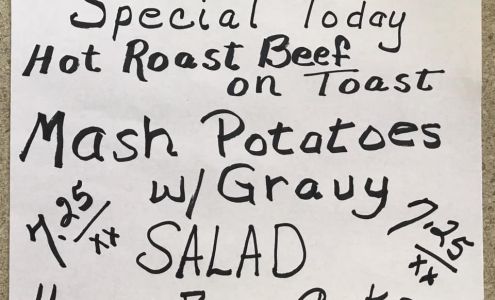 Special Today
Hot Roast Beef
on Toast
Mash Potatoes
w/ Gravy
7.25/xx
7.25/xx
SALAD